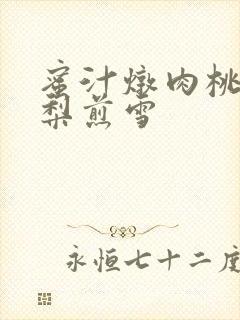 蜜汁燉肉桃
梨煎雪
永恒七十二度